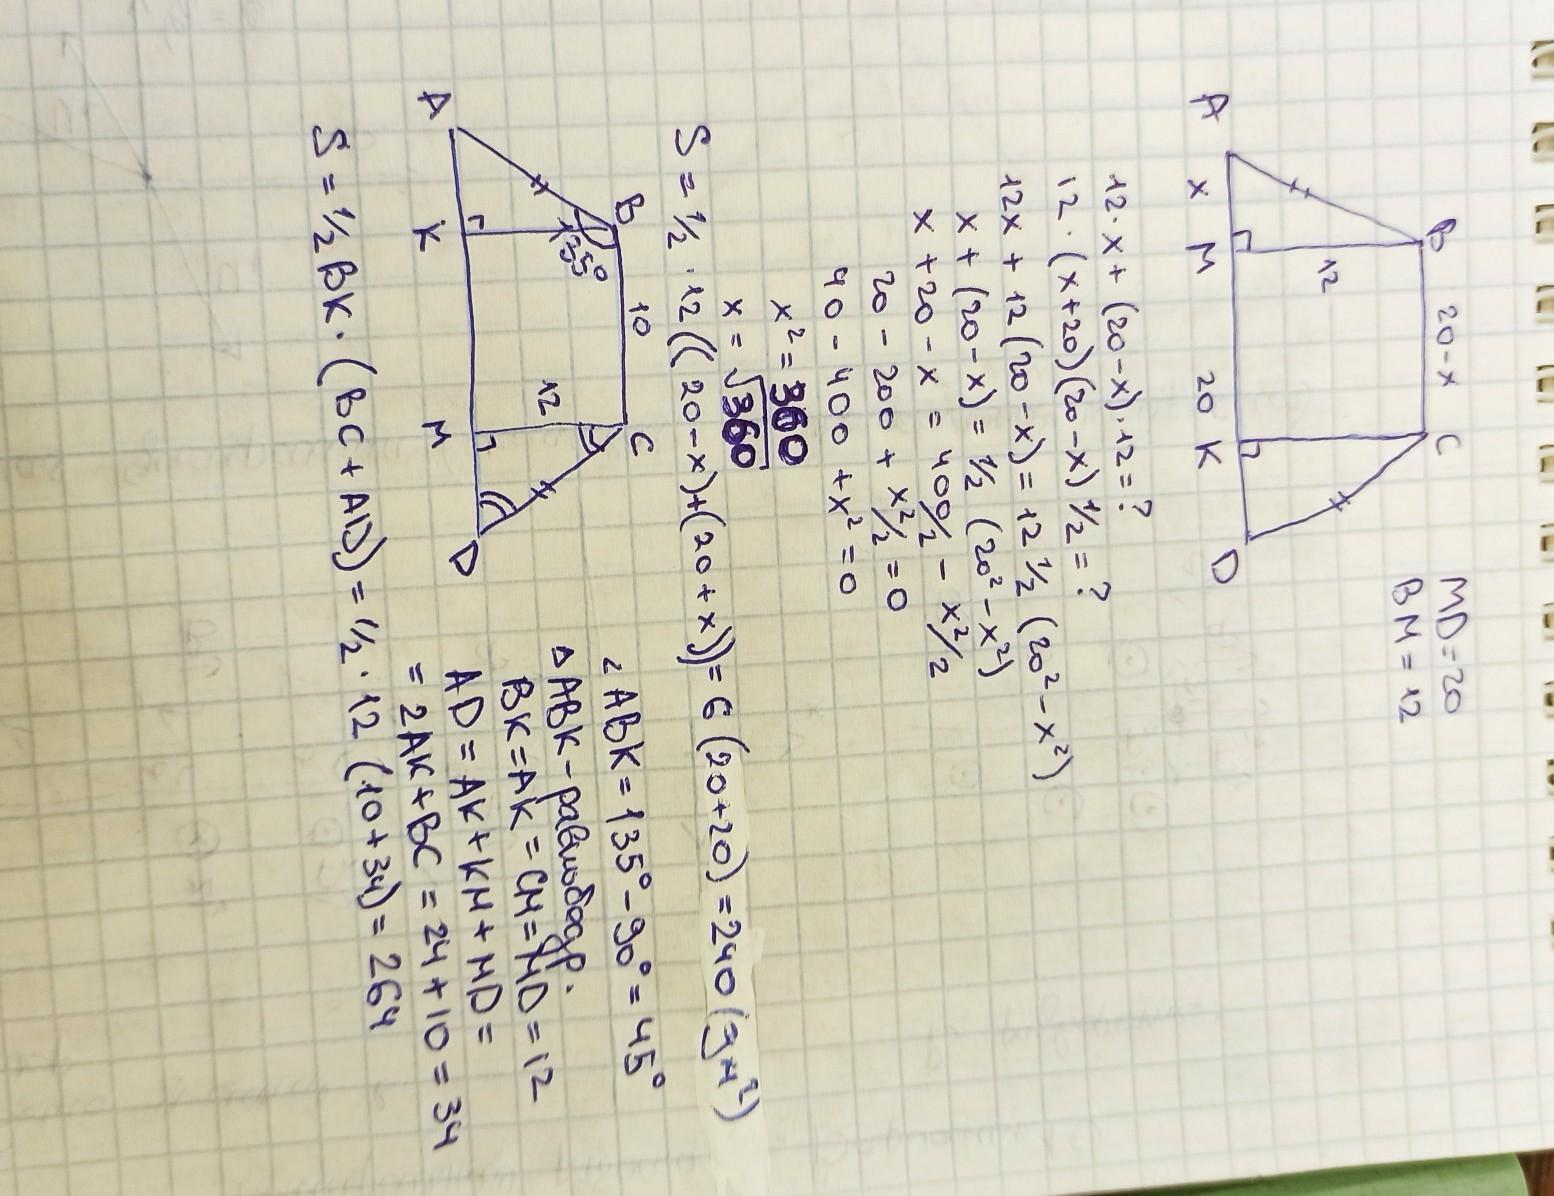 MD=20
BM = 12
A
B
C
D
x
M
20
K
12
20-x
12·x + (20-x)·12 = ?
12·(x+20)(20-x) 1/2 = ?
12x + 12(20-x) = 12 1/2 (20² - x²)
x + (20-x) = 1/2 (20² - x²)
x + 20 - x = 400/2 - x²/2
20 - 200 + x²/2 = 0
40 - 400 + x² = 0
x² = 360
x = √360
S = 1/2 · 12 ((20-x)+(20+x)) = 6 (20+20) = 240 (дм²)
A
B
C
D
K
M
135°
10
12
∠ABK = 135° - 90° = 45°
△ABK - равнобедр.
BK = AK = CM = MD = 12
AD = AK + KM + MD =
= 2AK + BC = 24 + 10 = 34
S = 1/2 BK · (BC + AD) = 1/2 · 12 (10 + 34) = 264